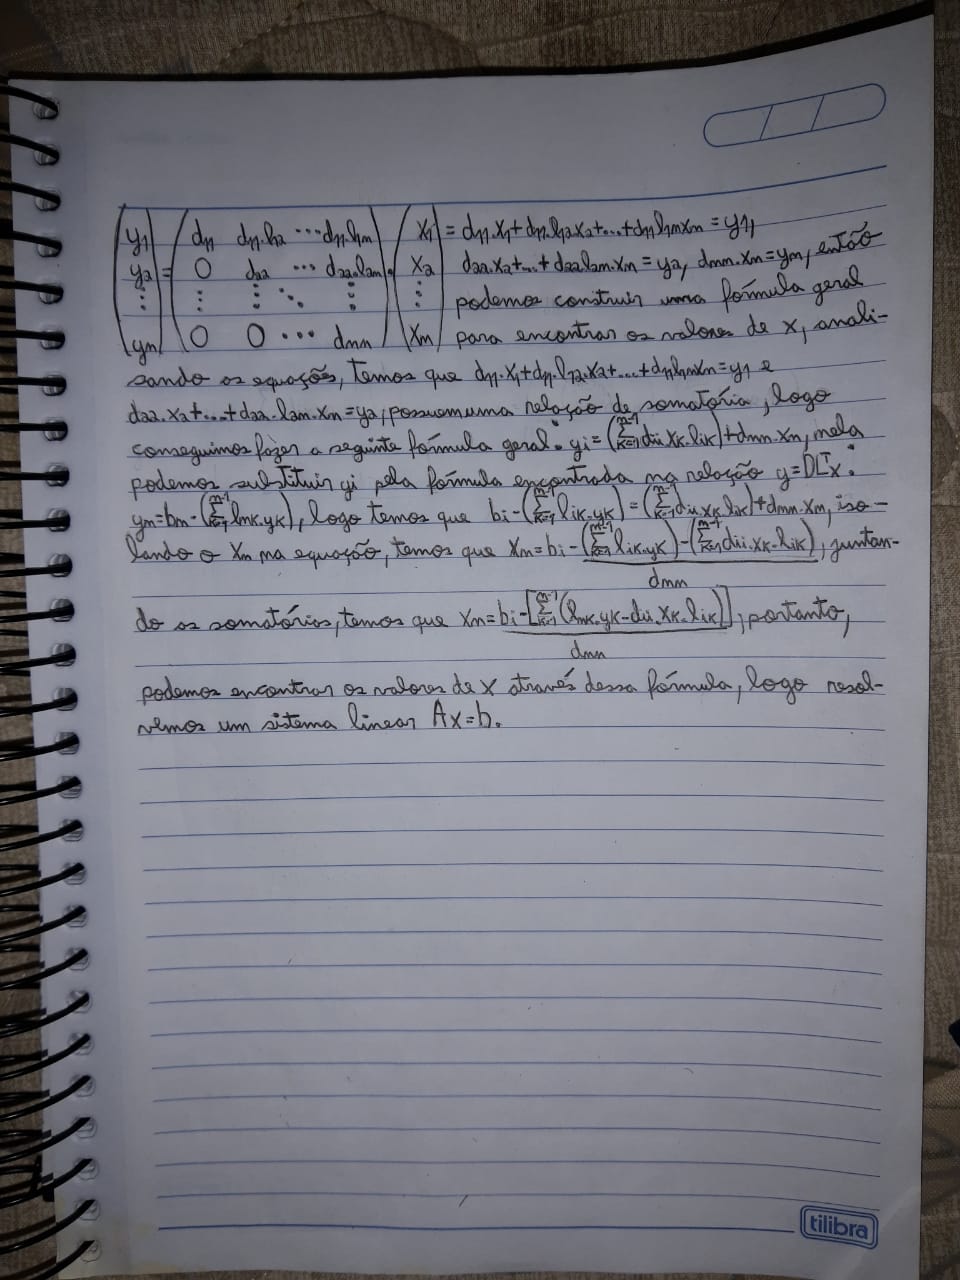 (y1) = (d11 d11.l12 ... d11.l1n) . (x1) = d11.x1+d11.l12x2+...+d11l1nxn=y1,
(y2) (0 d22 ... d22.l2n) (x2) d22.x2+...+d22l2n.xn=y2, dnn.xn=yn, então
(⋮) (⋮ ⋮ ⋱ ⋮) (⋮) podemos construir uma fórmula geral
(yn) (0 0 ... dnn) (xn) para encontrar os valores de x, anali-
sando as equações, temos que d11.x1+d11.l12.x2+...+d11l1nxn=y1 e
d22.x2+...+d22.l2n.xn=y2, possuem uma relação de somatória, logo
conseguimos fazer a seguinte fórmula geral: yi=(∑_{k=1}^{n-1} dii.xk.lik)+dnn.xn, nela
podemos substituir yi pela fórmula encontrada na relação y=DL^T x:
yn=bn-(∑_{k=1}^{n-1} lnk.yk), logo temos que bi-(∑_{k=1}^{n-1} lik.yk)=(∑_{k=1}^{n-1} dii.xk.lik)+dnn.xn, iso-
lando o xn na equação, temos que xn=bi-(∑_{k=1}^{n-1} lik.yk)-(∑_{k=1}^{n-1} dii.xk.lik), juntan-
dnn
do os somatórios, temos que xn=bi-[∑_{k=1}^{n-1}(lnk.yk-dii.xk.lik)], portanto,
dnn
podemos encontrar os valores de x através dessa fórmula, logo resol-
vemos um sistema linear Ax=b.
tilibra